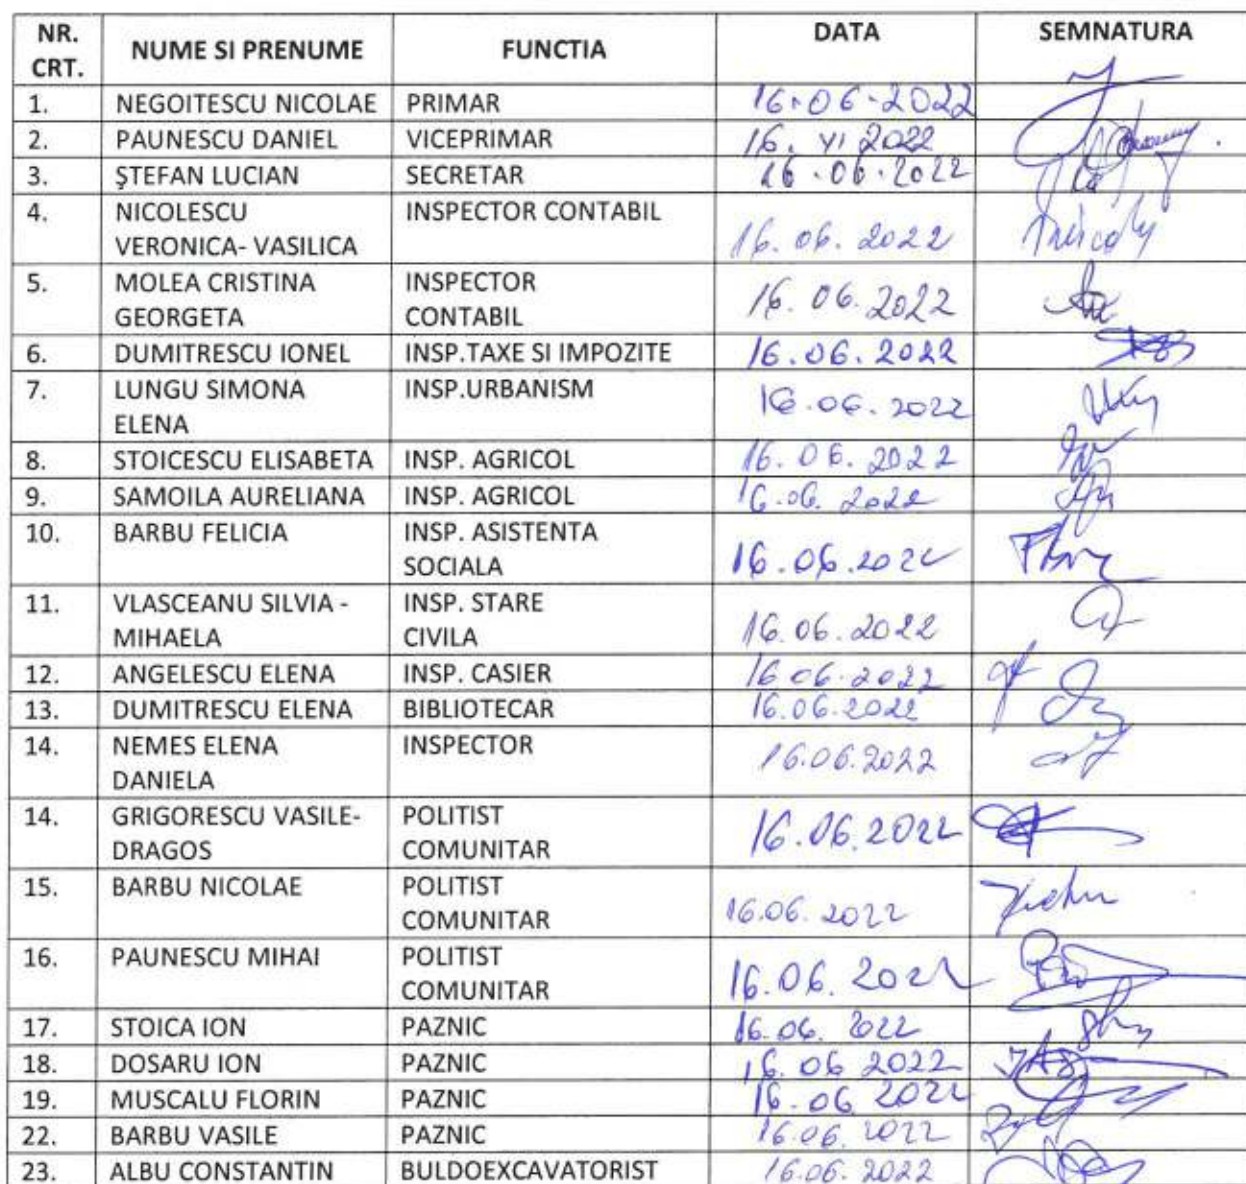 NR. CRT. NUME SI PRENUME FUNCTIA DATA SEMNATURA
1. NEGOITESCU NICOLAE PRIMAR 16.06.2022
2. PAUNESCU DANIEL VICEPRIMAR 16. VI 2022
3. ŞTEFAN LUCIAN SECRETAR 16.06.2022
4. NICOLESCU INSPECTOR CONTABIL
VERONICA- VASILICA 16.06.2022
5. MOLEA CRISTINA INSPECTOR
GEORGETA CONTABIL 16.06.2022
6. DUMITRESCU IONEL INSP.TAXE SI IMPOZITE 16.06.2022
7. LUNGU SIMONA INSP.URBANISM
ELENA 16.06.2022
8. STOICESCU ELISABETA INSP. AGRICOL 16.06.2022
9. SAMOILA AURELIANA INSP. AGRICOL 16.06.2022
10. BARBU FELICIA INSP. ASISTENTA
SOCIALA 16.06.2022
11. VLASCEANU SILVIA - INSP. STARE
MIHAELA CIVILA 16.06.2022
12. ANGELESCU ELENA INSP. CASIER 16 06.2022
13. DUMITRESCU ELENA BIBLIOTECAR 16.06.2022
14. NEMES ELENA INSPECTOR
DANIELA 16.06.2022
14. GRIGORESCU VASILE- POLITIST
DRAGOS COMUNITAR 16.06.2022
15. BARBU NICOLAE POLITIST
COMUNITAR 16.06.2022
16. PAUNESCU MIHAI POLITIST
COMUNITAR 16.06.2022
17. STOICA ION PAZNIC 16.06.2022
18. DOSARU ION PAZNIC 16.06 2022
19. MUSCALU FLORIN PAZNIC 16.06 2022
22. BARBU VASILE PAZNIC 16.06.2022
23. ALBU CONSTANTIN BULDOEXCAVATORIST 16.06.2022